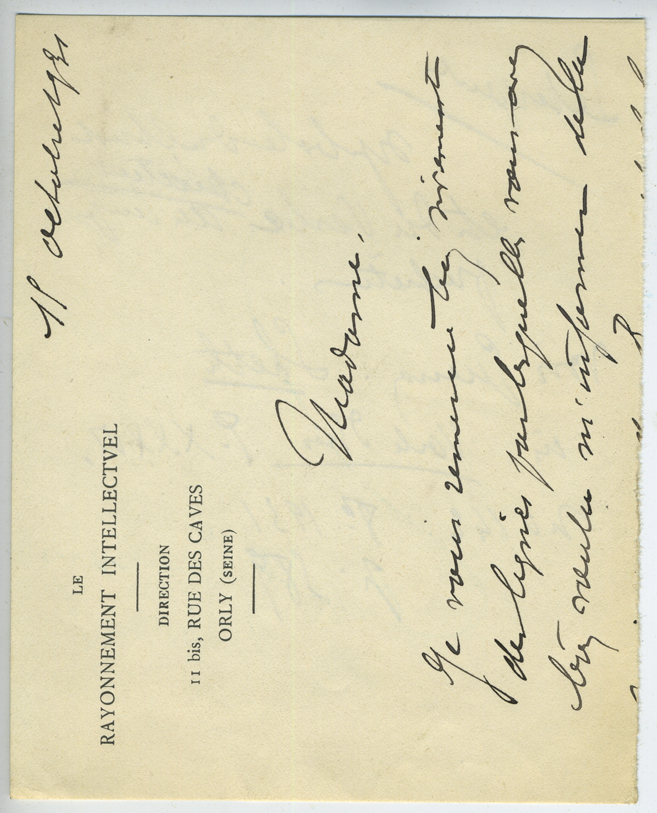 LE
RAYONNEMENT INTELLECTVEL
DIRECTION
11 bis, RUE DES CAVES
ORLY (SEINE)
octobre 1931
Madame,
Je vous remercie bien vivement
des lignes par lesquelles vous avez
bien voulu m'informer de la